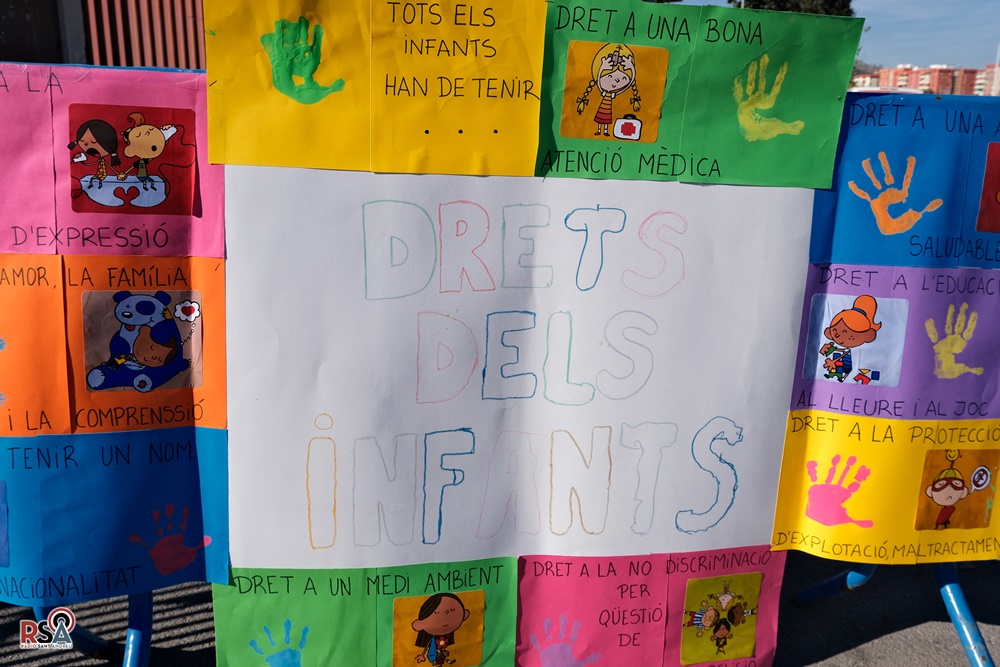 TOTS ELS
INFANTS
HAN DE TENIR
. . .
DRET A UNA BONA
ATENCIÓ MÈDICA
A LA
D'EXPRESSIÓ
AMOR, LA FAMÍLIA
I LA COMPRENSSIÓ
TENIR UN NOM
NACIONALITAT
DRETS
DELS
INFANTS
DRET A UNA A
SALUDABLE
DRET A L'EDUCAC
AL LLEURE I AL JOC
DRET A LA PROTECCIÓ
D'EXPLOTACIÓ, MALTRACTAMEN
DRET A UN MEDI AMBIENT
DRET A LA NO DISCRIMINACIÓ
PER
QÜESTIÓ
DE
RSA
RÀDIO SANT ANDREU